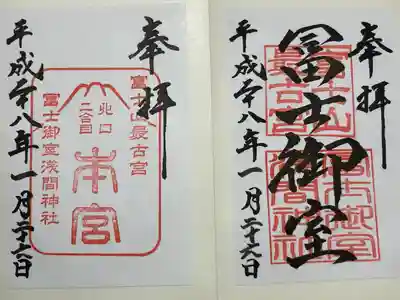 奉拝
冨士御室
冨士山
最古宮
冨士御室
浅間神社
平成廿八年一月二十九日
奉拝
冨士山最古宮
北口
二合目
本宮
冨士御室浅間神社
平成廿八年一月二十六日